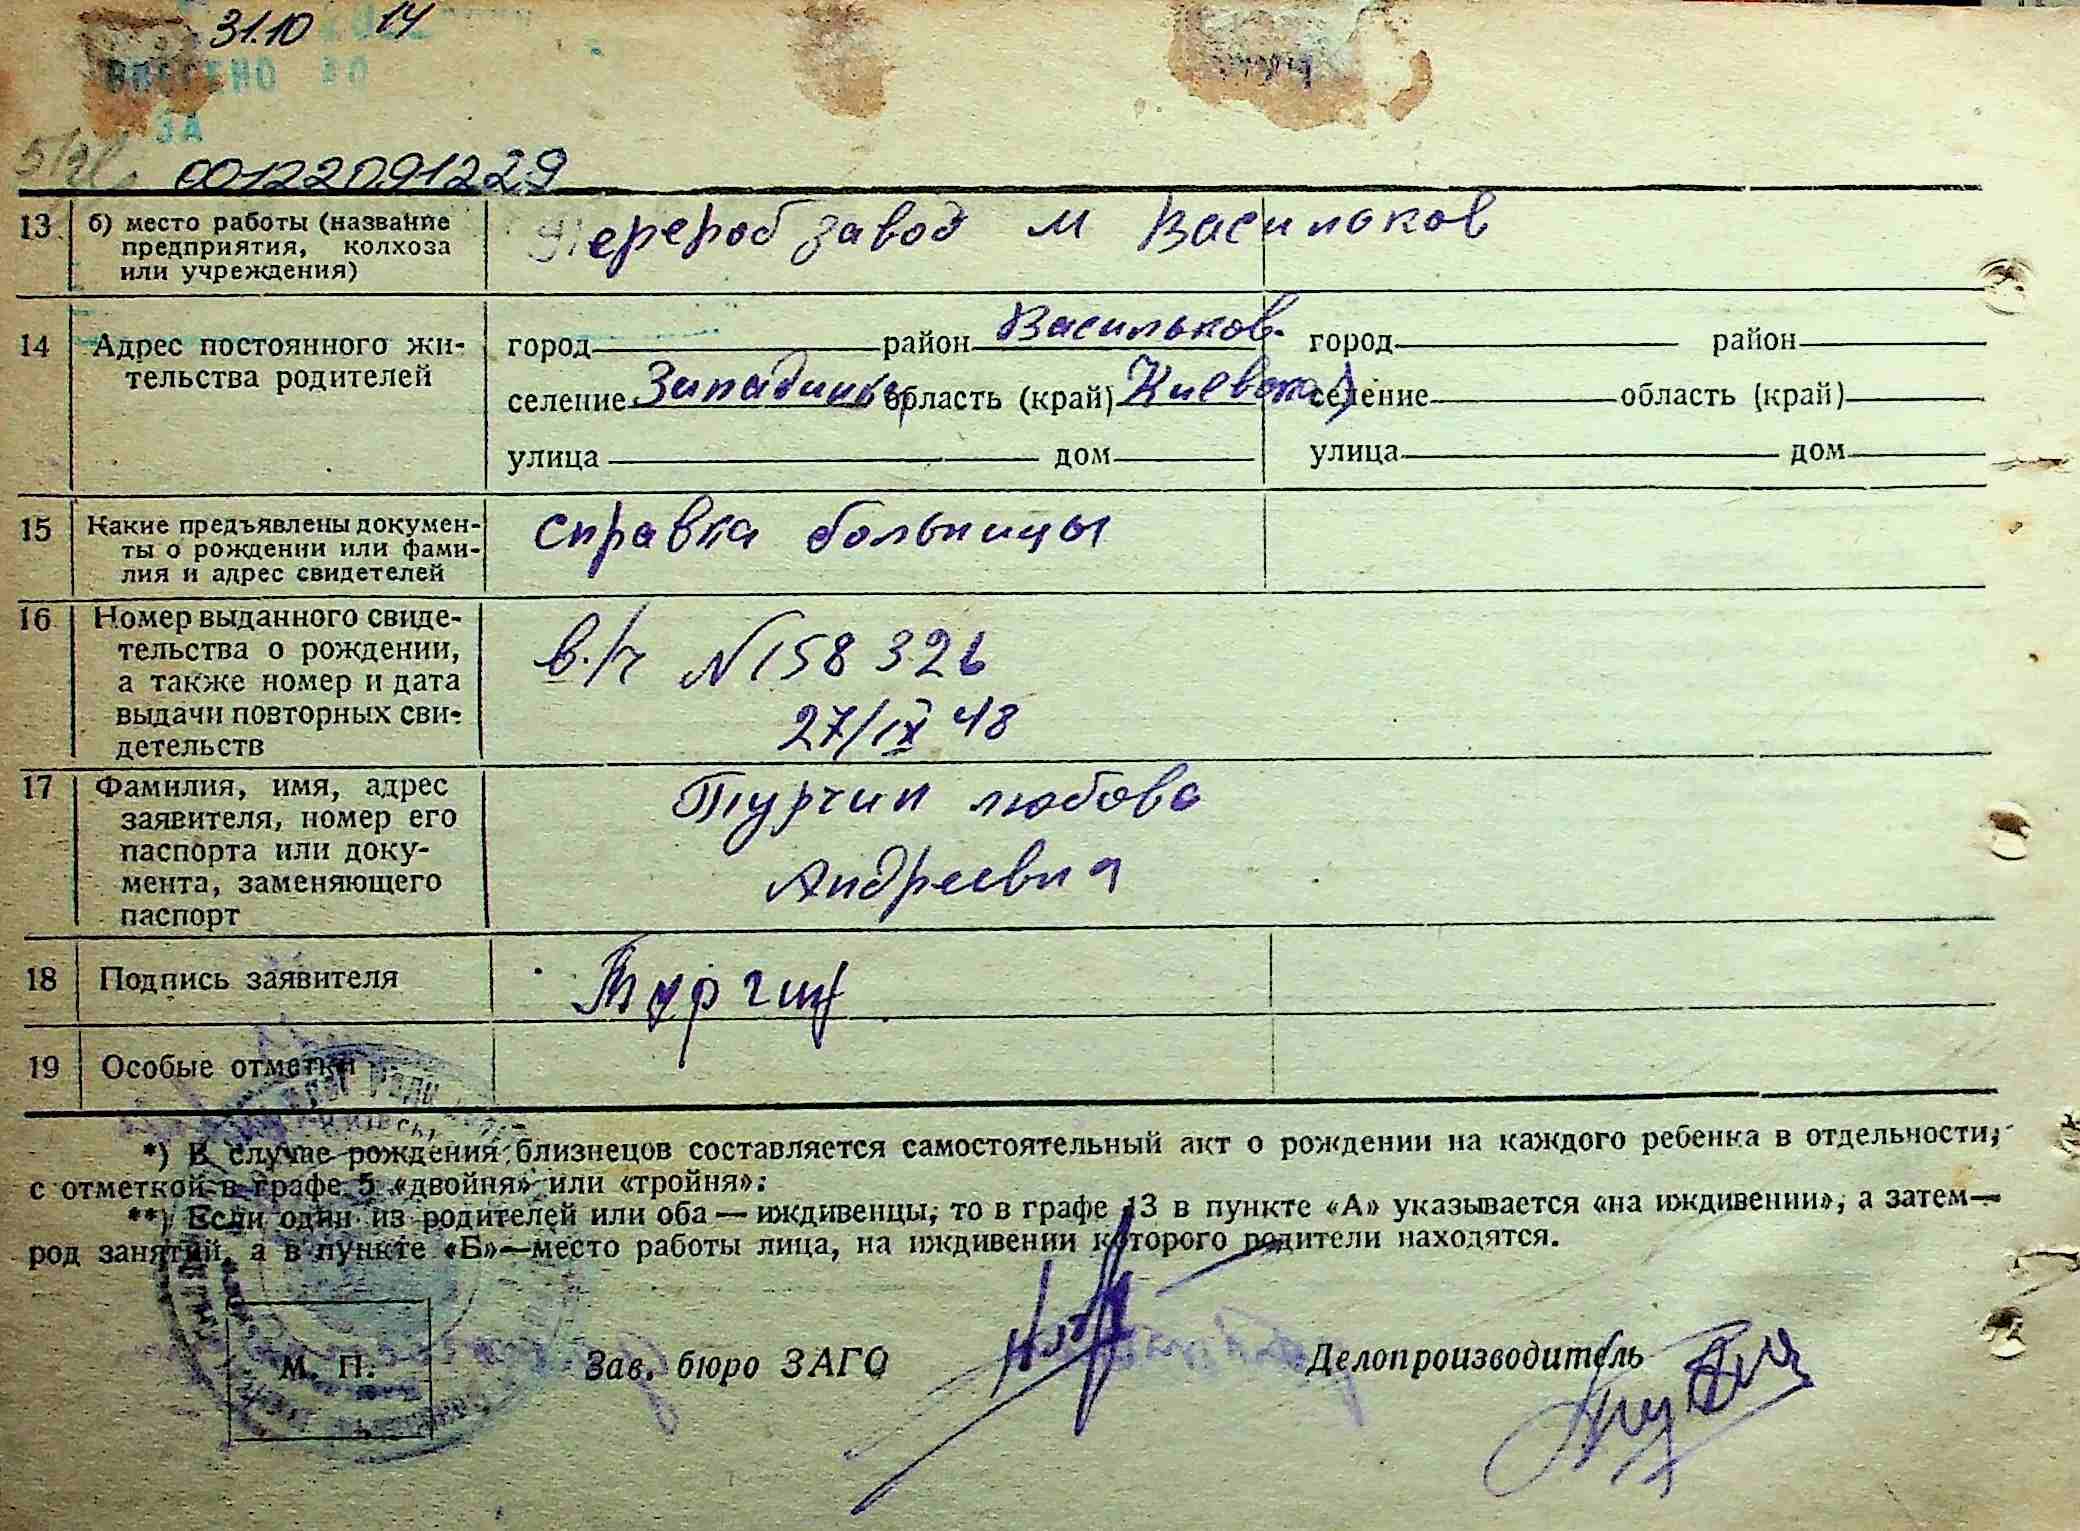 31.10 14
ВНЕСЕНО ДО
ЗА
00122091229
13 б) место работы (название предприятия, колхоза или учреждения) Перероб завод м Васильков
14 Адрес постоянного жи-
тельства родителей
город район Васильков. город район
селение Западинка область (край) Киевская селение область (край)
улица дом улица дом
15 Какие предъявлены докумен-
ты о рождении или фами-
лия и адрес свидетелей
справка больницы
16 Номер выданного свиде-
тельства о рождении,
а также номер и дата
выдачи повторных сви-
детельств
в./ч N 158326
27/IX 48
17 Фамилия, имя, адрес
заявителя, номер его
паспорта или доку-
мента, заменяющего
паспорт
Турчин любовь
Андреевна
18 Подпись заявителя Турчин
19 Особые отметки
*) В случае рождения близнецов составляется самостоятельный акт о рождении на каждого ребенка в отдельности,
с отметкой в графе 5 «двойня» или «тройня».
**) Если один из родителей или оба — иждивенцы, то в графе 13 в пункте «А» указывается «на иждивении», а затем—
род занятий, а в пункте «Б»—место работы лица, на иждивении которого родители находятся.
М. П. Зав. бюро ЗАГС Делопроизводитель